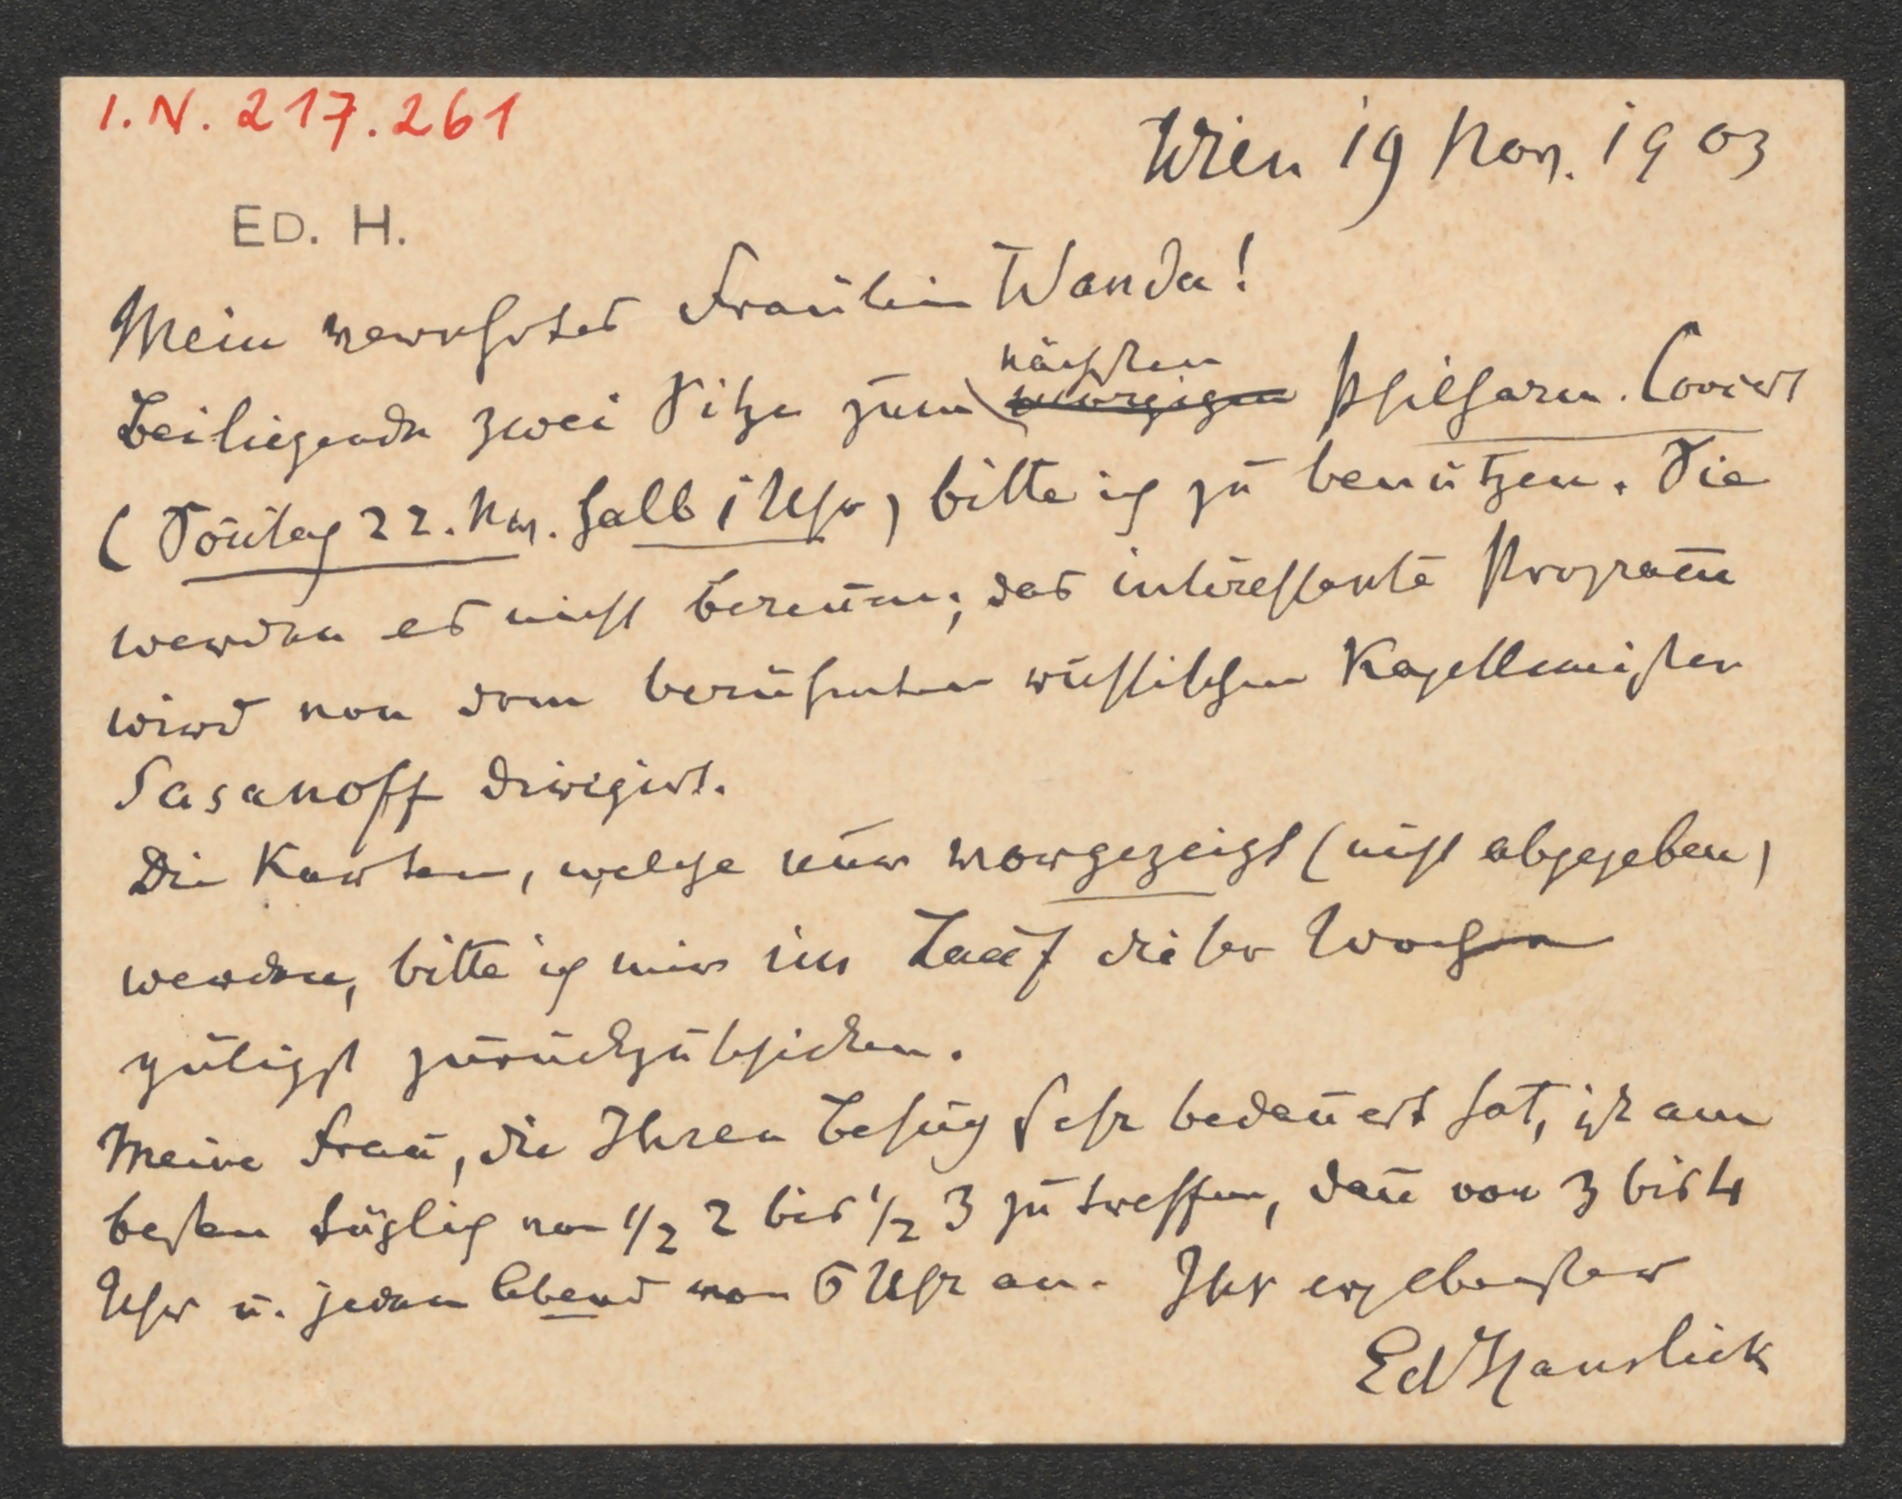 I.N. 217.261
Wien 19 Nov. 1903
ED. H.
Mein verehrtes Fräulein Wanda!
nächsten
Beiliegende zwei Sitze zum morgigen Philharm. Concert
(Sontag 22. Nov. halb 1 Uhr) bitte ich zu benützen. Sie
werden es nicht bereuen; das interessante Program̅
wird von dem berühmten russischen Kapellmeister
Sasanoff dirigirt.
Die Karten, welche nur vorgezeigt (nicht abgegeben)
werden, bitte ich mir im Lauf dieser Woche
gütigst zurückzuschicken.
Meine Frau, die Ihren Besuch sehr bedauert hat, ist am
besten täglich von 1/2 2 bis 1/2 3 zu treffen, dan̅ von 3 bis 4
Uhr u. jeden Abend von 6 Uhr an. Ihr ergebenster
Ed Hanslick